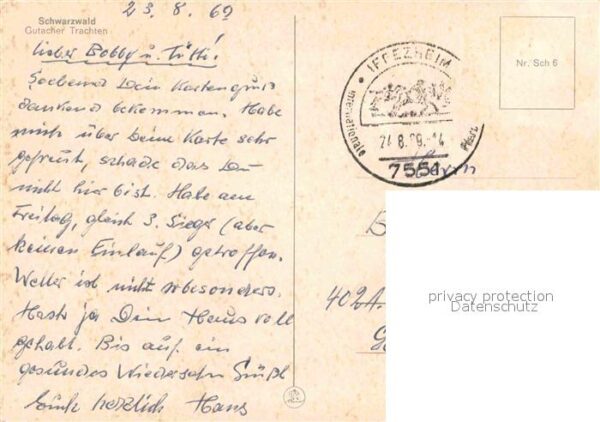 23.8.69
Schwarzwald
Gutacher Trachten
Lieber Bobby u. Tütti!
Soebend Dein Kartengruß
dankend bekommen. Habe
mich über Deine Karte sehr
gefreut, schade das Du
nicht hier bist. Habe am
Freitag, gleich 3. Sieger (aber
keinen Einlauf) getroffen.
Wetter ist nicht besonders.
Hast ja Dein Haus voll
gehabt. Bis auf ein
gesundes Wiedersehn Grüßt
Euch herzlich Hans
IFFEZHEIM
Internationale
24.8.69.-14
7551
Nr. Sch 6
Herrn
B
402
privacy protection
Datenschutz